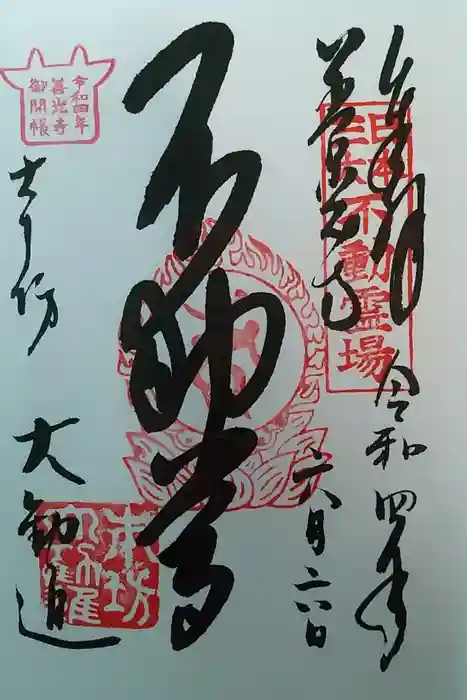 奉拝
令和四年
善光寺
六月二六日
日本
三大不動霊場
不動尊
令和四年
善光寺
御開帳
大勧進